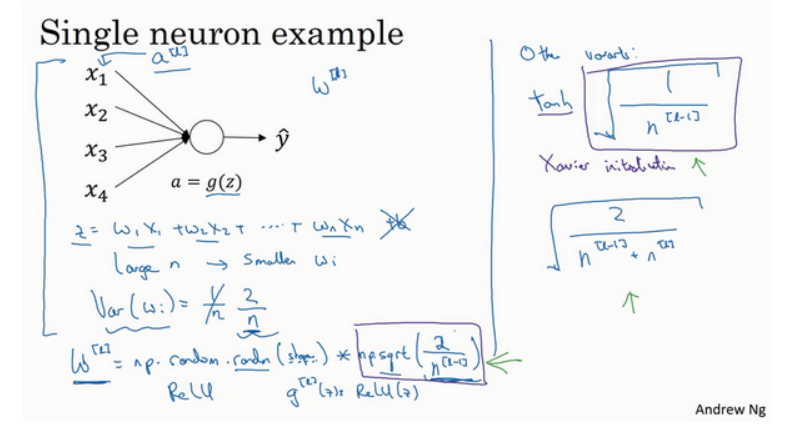 Single neuron example
x₁ a^[l]
x₂
x₃
x₄
ŷ
a = g(z)
w^[l]
z = w₁x₁ + w₂x₂ + ... + wₙxₙ + b
Large n → Smaller wᵢ
Var(wᵢ) = 1/n 2/n
W^[l] = np.random.randn(shape) * np.sqrt(2/n^[l-1])
ReLU g^[l](z) = ReLU(z)
Other variants:
tanh √(1/n^[l-1])
Xavier initialization
√(2/(n^[l-1] + n^[l]))
Andrew Ng